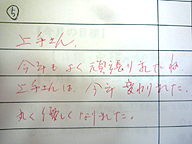 上手さん、
今年もよく頑張りましたね
上手さんは、今年変わりました。
丸く優しくなりました。